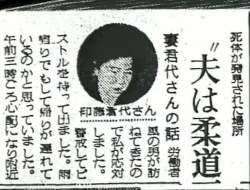 死体が発見された場所
〝夫は柔道
妻君代さんの話 労働者
風の男が訪
ねてきたの
で私が応対
しました。
警戒してピ
印藤君代さん
ストルを持って出ました。雨
宿りでもして帰りが遅れて
いるのかと思っていました。
午前三時ごろ心配になり附近